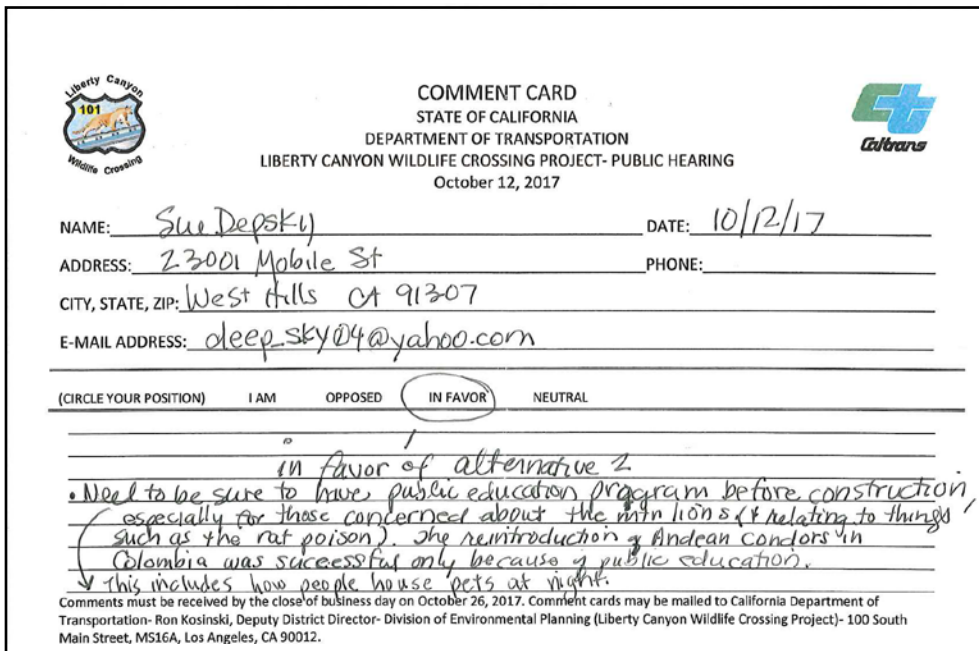 Liberty Canyon
101
Wildlife Crossing
COMMENT CARD
STATE OF CALIFORNIA
DEPARTMENT OF TRANSPORTATION
LIBERTY CANYON WILDLIFE CROSSING PROJECT- PUBLIC HEARING
October 12, 2017
Caltrans
NAME: Sue Depsky DATE: 10/12/17
ADDRESS: 23001 Mobile St PHONE:
CITY, STATE, ZIP: West Hills CA 91307
E-MAIL ADDRESS: deep_sky04@yahoo.com
(CIRCLE YOUR POSITION) I AM OPPOSED IN FAVOR NEUTRAL
in favor of alternative 2
• Need to be sure to have public education program before construction,
especially for those concerned about the mtn lions (& relating to things
such as the rat poison). The reintroduction of Andean Condors in
Colombia was successful only because of public education.
This includes how people house pets at night.
Comments must be received by the close of business day on October 26, 2017. Comment cards may be mailed to California Department of
Transportation- Ron Kosinski, Deputy District Director- Division of Environmental Planning (Liberty Canyon Wildlife Crossing Project)- 100 South
Main Street, MS16A, Los Angeles, CA 90012.